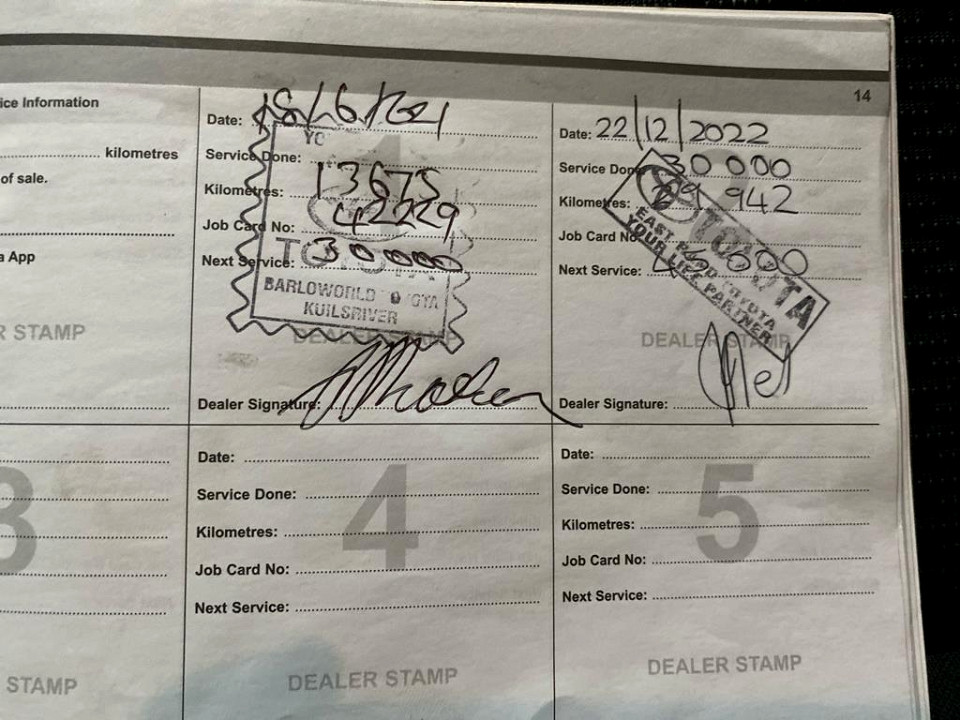 14
ice Information
kilometres
of sale.
a App
R STAMP
Date: 18/6/2021
Service Done:
Kilometres: 13675
Job Card No: 42229
Next Service: 30000
BARLOWORLD TOYOTA
KUILSRIVER
DEALER STAMP
Dealer Signature:
Date: 22/12/2022
Service Done: 30 000
Kilometres: 29 942
Job Card No:
Next Service: 45 000
TOYOTA
EAST RAND TOYOTA
YOUR LIFE PARTNER
DEALER STAMP
Dealer Signature:
3
STAMP
4
Date:
Service Done:
Kilometres:
Job Card No:
Next Service:
DEALER STAMP
5
Date:
Service Done:
Kilometres:
Job Card No:
Next Service:
DEALER STAMP